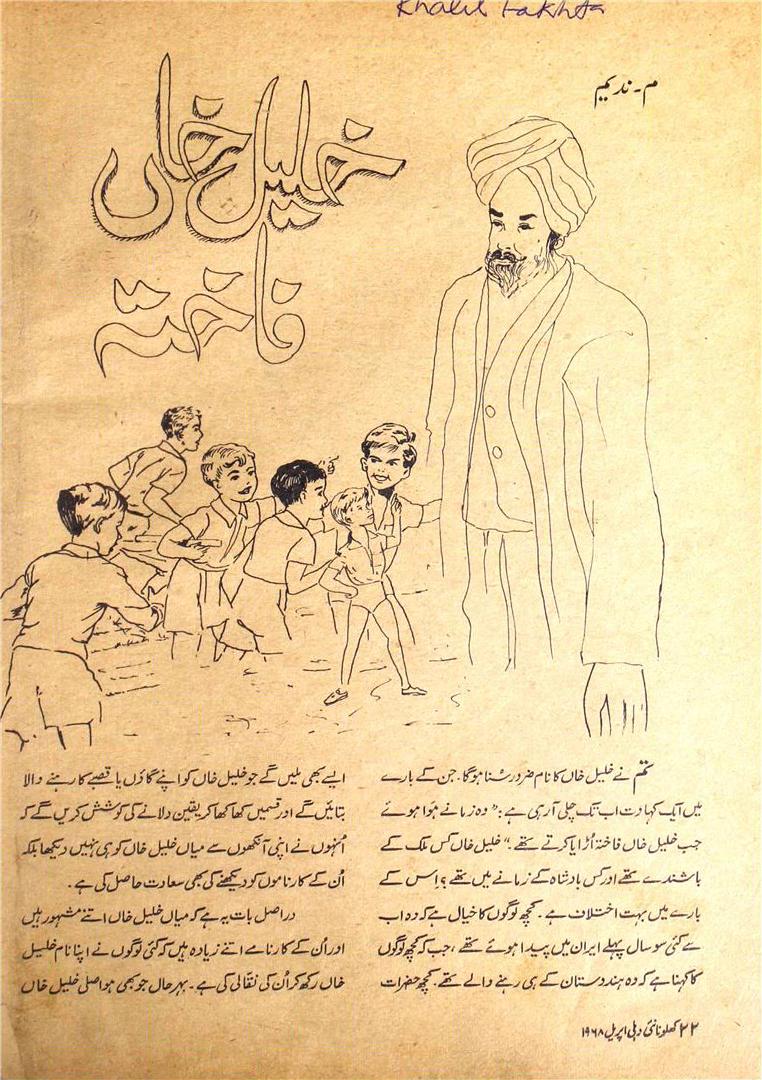 Khalil Fakhta
م۔ ندیم
خلیل خاں
فاختہ
تم نے خلیل خاں کا نام ضرور سُنا ہوگا۔ جن کے بارے
میں ایک کہاوت اب تک چلی آرہی ہے: "وہ زمانے ہَوا ہوئے
جب خلیل خاں فاختہ اُڑایا کرتے تھے۔" خلیل خاں کس ملک کے
باشندے تھے اور کس بادشاہ کے زمانے میں تھے؟ اِس کے
بارے میں بہت اختلاف ہے۔ کچھ لوگوں کا خیال ہے کہ وہ اب
سے کئی سو سال پہلے ایران میں پیدا ہوئے تھے، جب کہ کچھ لوگوں
کا کہنا ہے کہ وہ ہندوستان کے ہی رہنے والے تھے۔ کچھ حضرات
ایسے بھی ملیں گے جو خلیل خاں کو اپنے گاؤں یا قصبے کا رہنے والا
بتائیں گے اور قسمیں کھا کھا کر یقین دلانے کی کوشش کریں گے کہ
اُنہوں نے اپنی آنکھوں سے میاں خلیل خاں کو ہی نہیں دیکھا بلکہ
اُن کے کارناموں کو دیکھنے کی بھی سعادت حاصل کی ہے۔
دراصل بات یہ ہے کہ میاں خلیل خاں اتنے مشہور ہیں
اور اُن کے کارنامے اتنے زیادہ ہیں کہ کئی لوگوں نے اپنا نام خلیل
خاں رکھ کر اُن کی نقالی کی ہے۔ بہرحال جو بھی ہو اصلی خلیل خاں
۲۲ کھلونا نئی دہلی اپریل ۱۹۶۸